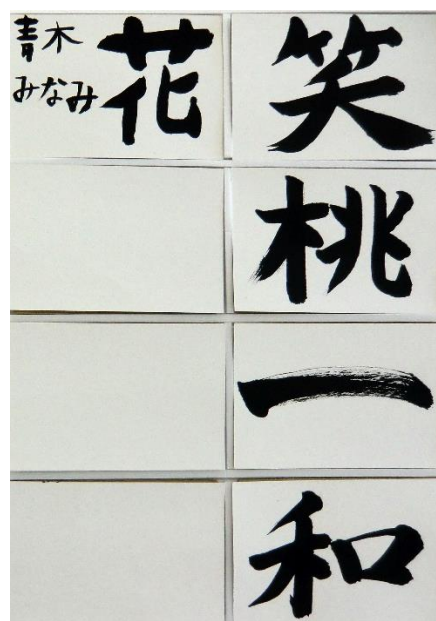 笑
桃
一
和
花
青木
みなみ